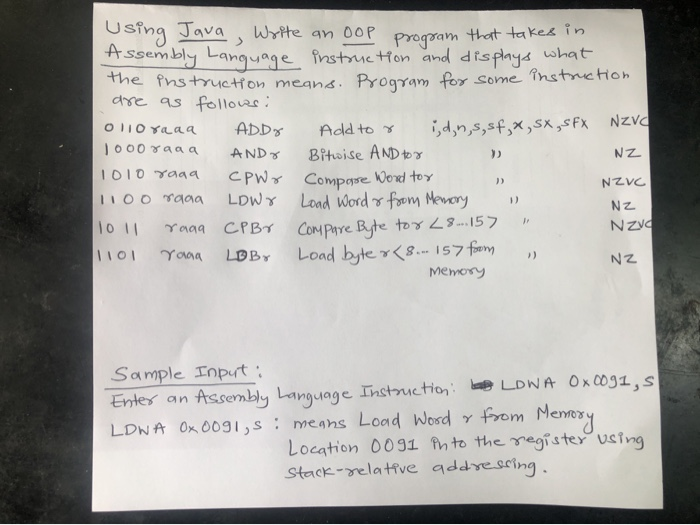 Using Java, Write an OOP program that takes in
Assembly Language instruction and displays what
the instruction means. Program for some instruction
are as follows:
0110raaa ADDr Add to r i,d,n,s,sf,x,sx,sfx NZVC
1000raaa ANDr Bitwise AND to r " NZ
1010 raaa CPWr Compare Word to r " NZVC
1100 raaa LDWr Load Word r from Memory " NZ
1011 raaa CPBr Compare Byte to r <8...15> " NZVC
1101 raaa LDBr Load byte r <8... 15> from " NZ
Memory
Sample Input:
Enter an Assembly Language Instruction: LDWA 0x0091,s
LDWA 0x0091,s : means Load Word r from Memory
Location 0091 into the register using
stack-relative addressing.